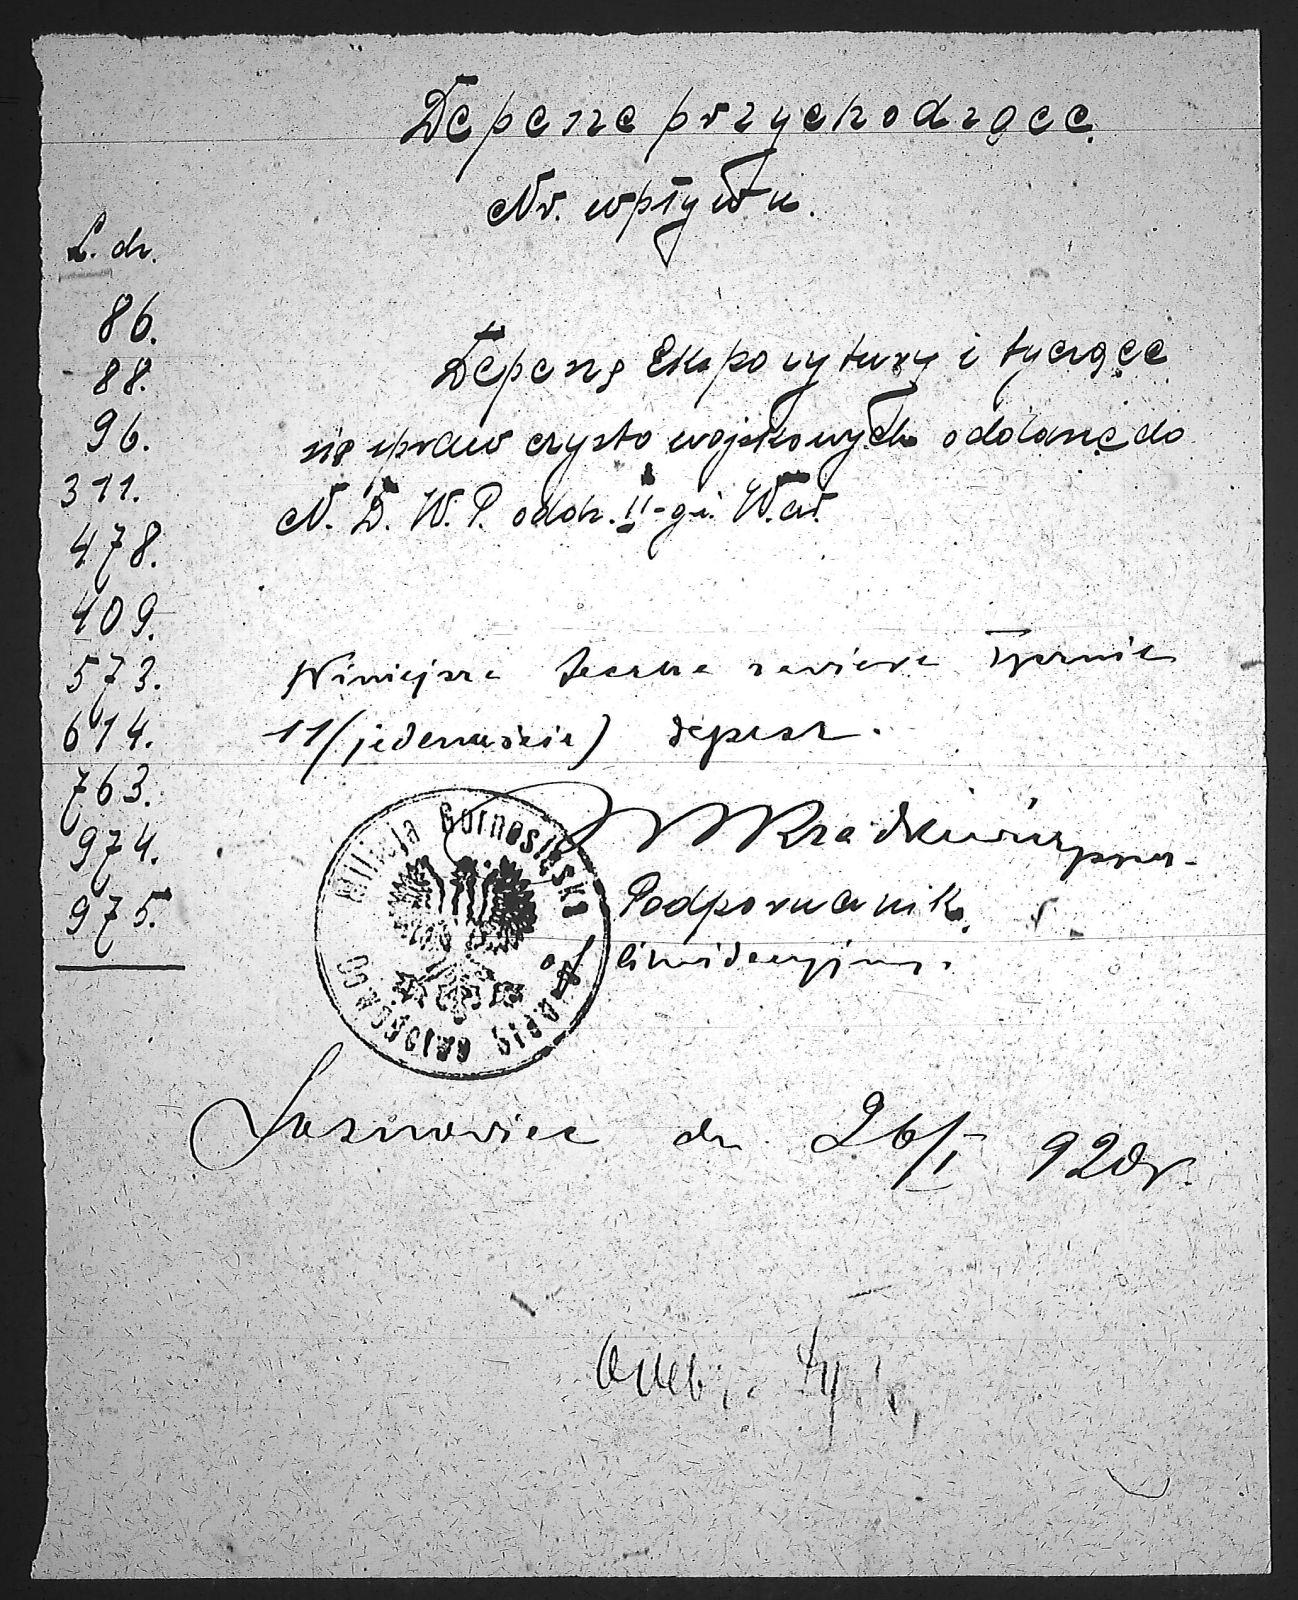 Depesze przychodzące.
Nr. wpływu.
L. dz.
86.
88.
96.
311.
478.
409.
573.
614.
763.
974.
975.
Depeszę Ekspozytury i tyczące
się spraw czysto wojskowych odesłane do
N. D. W. P. oddz. II-gi. W.
Niniejsza teczka zawiera
11 (jedenaście) depesz.
Milicja Górnośląska
Podporucznik
of. likwidacyjny.
Sosnowiec dn 26/I 920r.